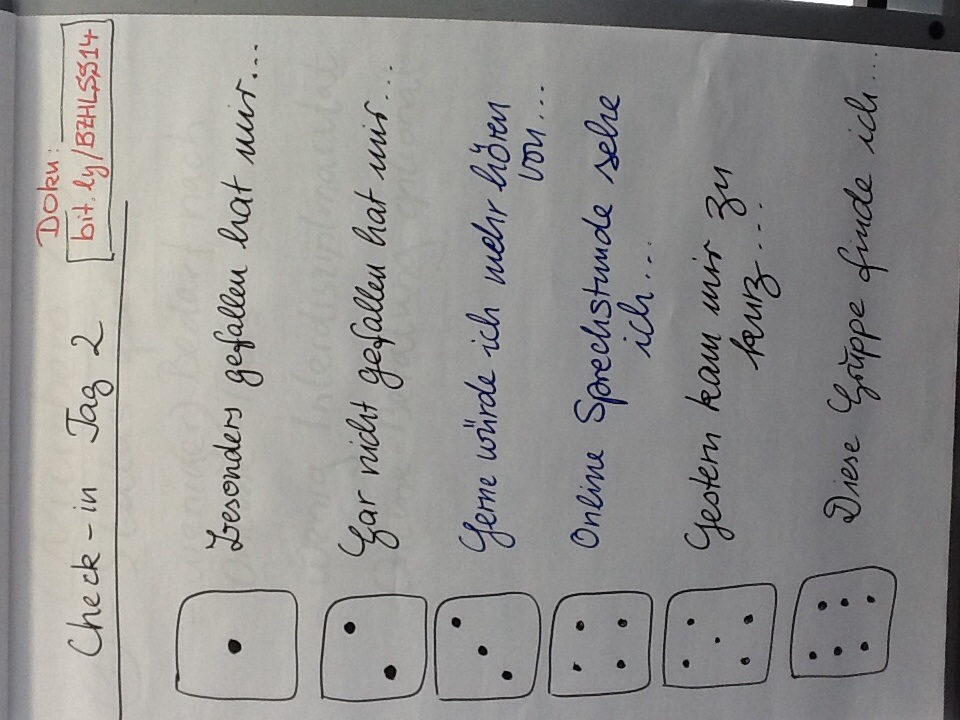 Doku:
Check-in Tag 2
bit.ly/BZHLSS14
Besonders gefallen hat mir...
Gar nicht gefallen hat mir...
Gerne würde ich mehr hören
von...
Online Sprechstunde sehe
ich...
Gestern kam mir zu
kurz...
Diese Gruppe finde ich...